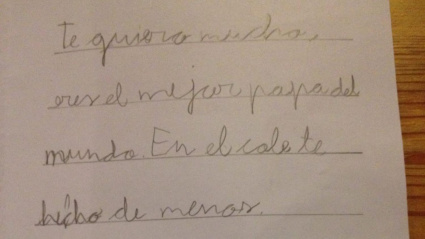 te quiero mucho,
eres el mejor papa del
mundo. En el cole te
hecho de menos.